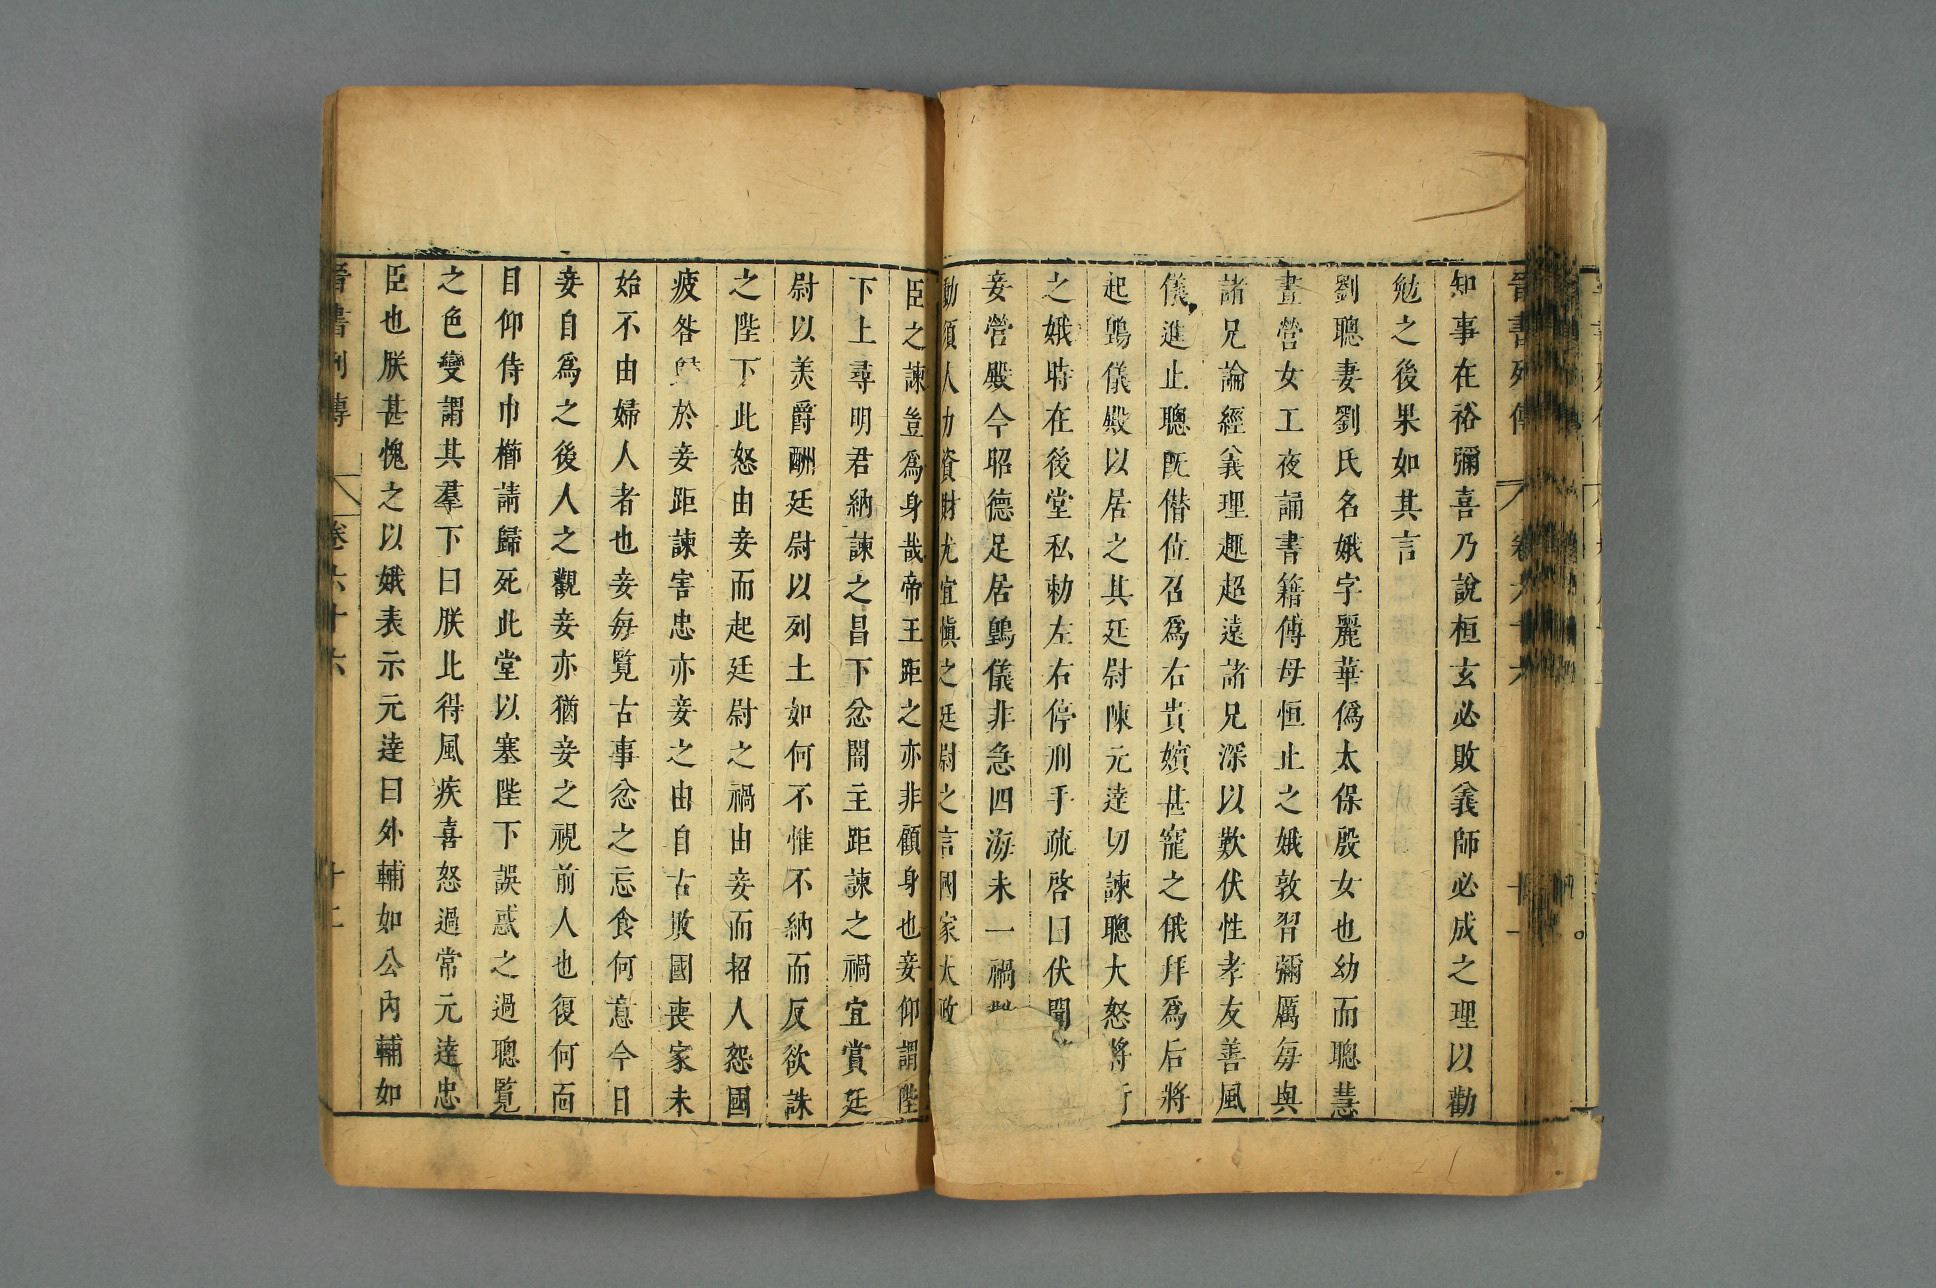 晉書列傳 卷六十六 十一
知事在裕彌喜乃說桓玄必敗義師必成之理以勸
勉之後果如其言
劉聰妻劉氏名娥字麗華僞太保殷女也幼而聰慧
晝營女工夜誦書籍傅母恒止之娥敦習彌厲每與
諸兄論經義理趣超遠諸兄深以歎伏性孝友善風
儀進止聰旣僭位召爲右貴嬪甚寵之俄拜爲后將
起䳨儀殿以居之其廷尉陳元達切諫聰大怒將行
之娥時在後堂私勅左右停刑手疏啓曰伏聞
妾營殿今昭德足居䳨儀非急四海未一禍
動須人力資財尤宜愼之廷尉之言國家大政
臣之諫豈爲身哉帝王距之亦非顧身也妾仰謂陛
下上尋明君納諫之昌下忿闇主距諫之禍宜賞廷
尉以美爵酬廷尉以列土如何不惟不納而反欲誅
之陛下此怒由妾而起廷尉之禍由妾而招人怨國
疲咎歸於妾距諫害忠亦妾之由自古敗國喪家未
始不由婦人者也妾每覽古事忿之忘食何意今日
妾自爲之後人之觀妾亦猶妾之視前人也復何面
目仰侍巾櫛請歸死此堂以塞陛下誤惑之過聰覽
之色變謂其羣下曰朕比得風疾喜怒過常元達忠
臣也朕甚愧之以娥表示元達曰外輔如公內輔如
晉書列傳 卷六十六 十二